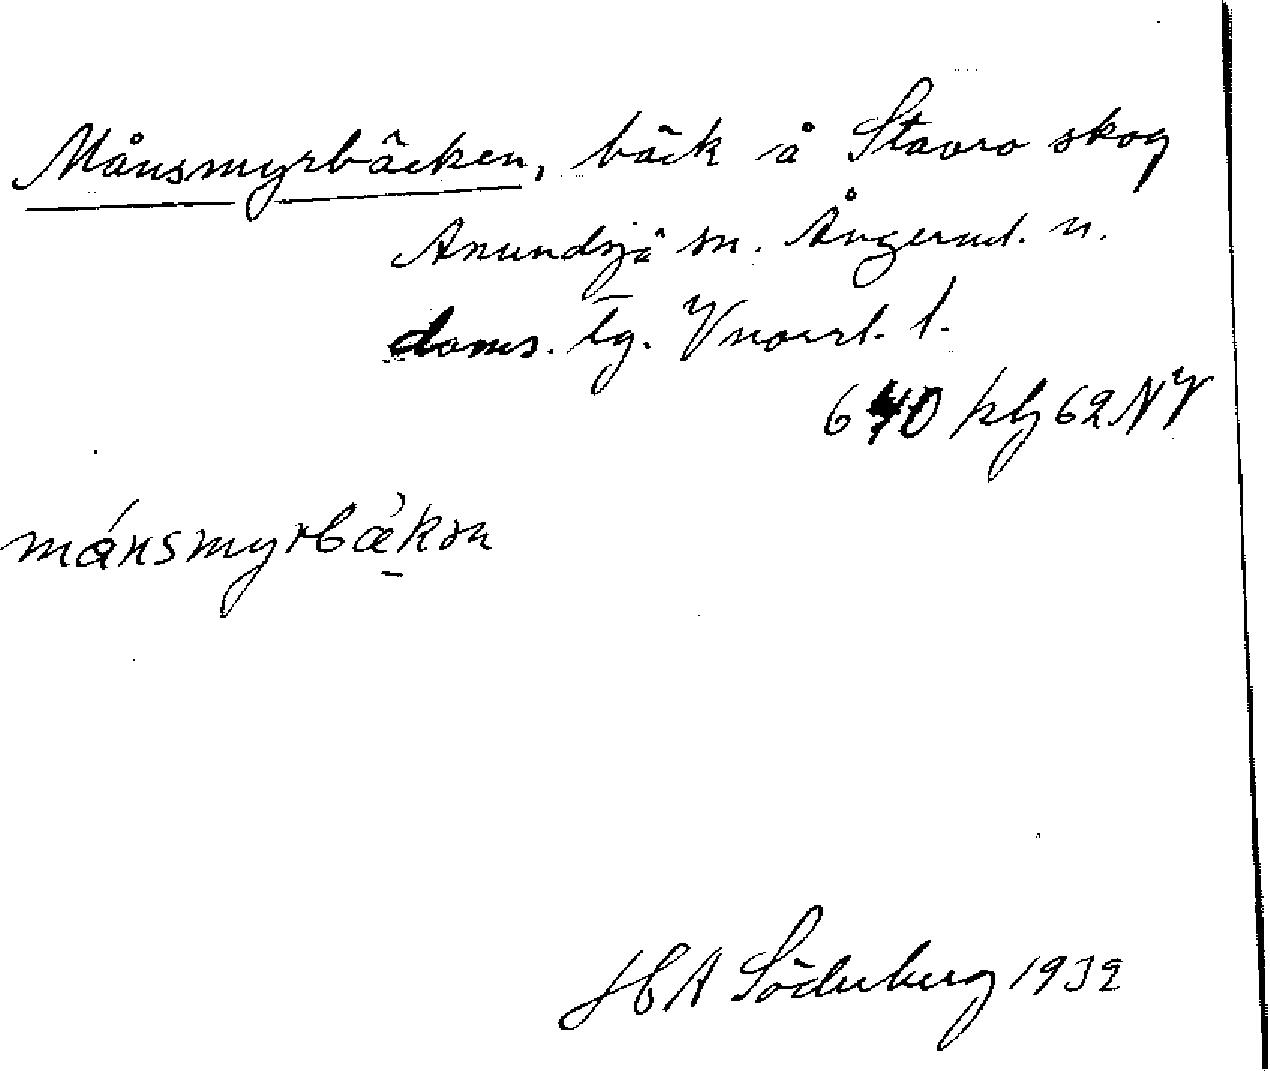 Månsmyrbäcken, bäck å Stavro skog
Anundsjö sn. Ångerml. n.
doms. tg. Vnorrl. l.
640 kbj 62 NV
månsmyrbækən
H A Söderberg 1932